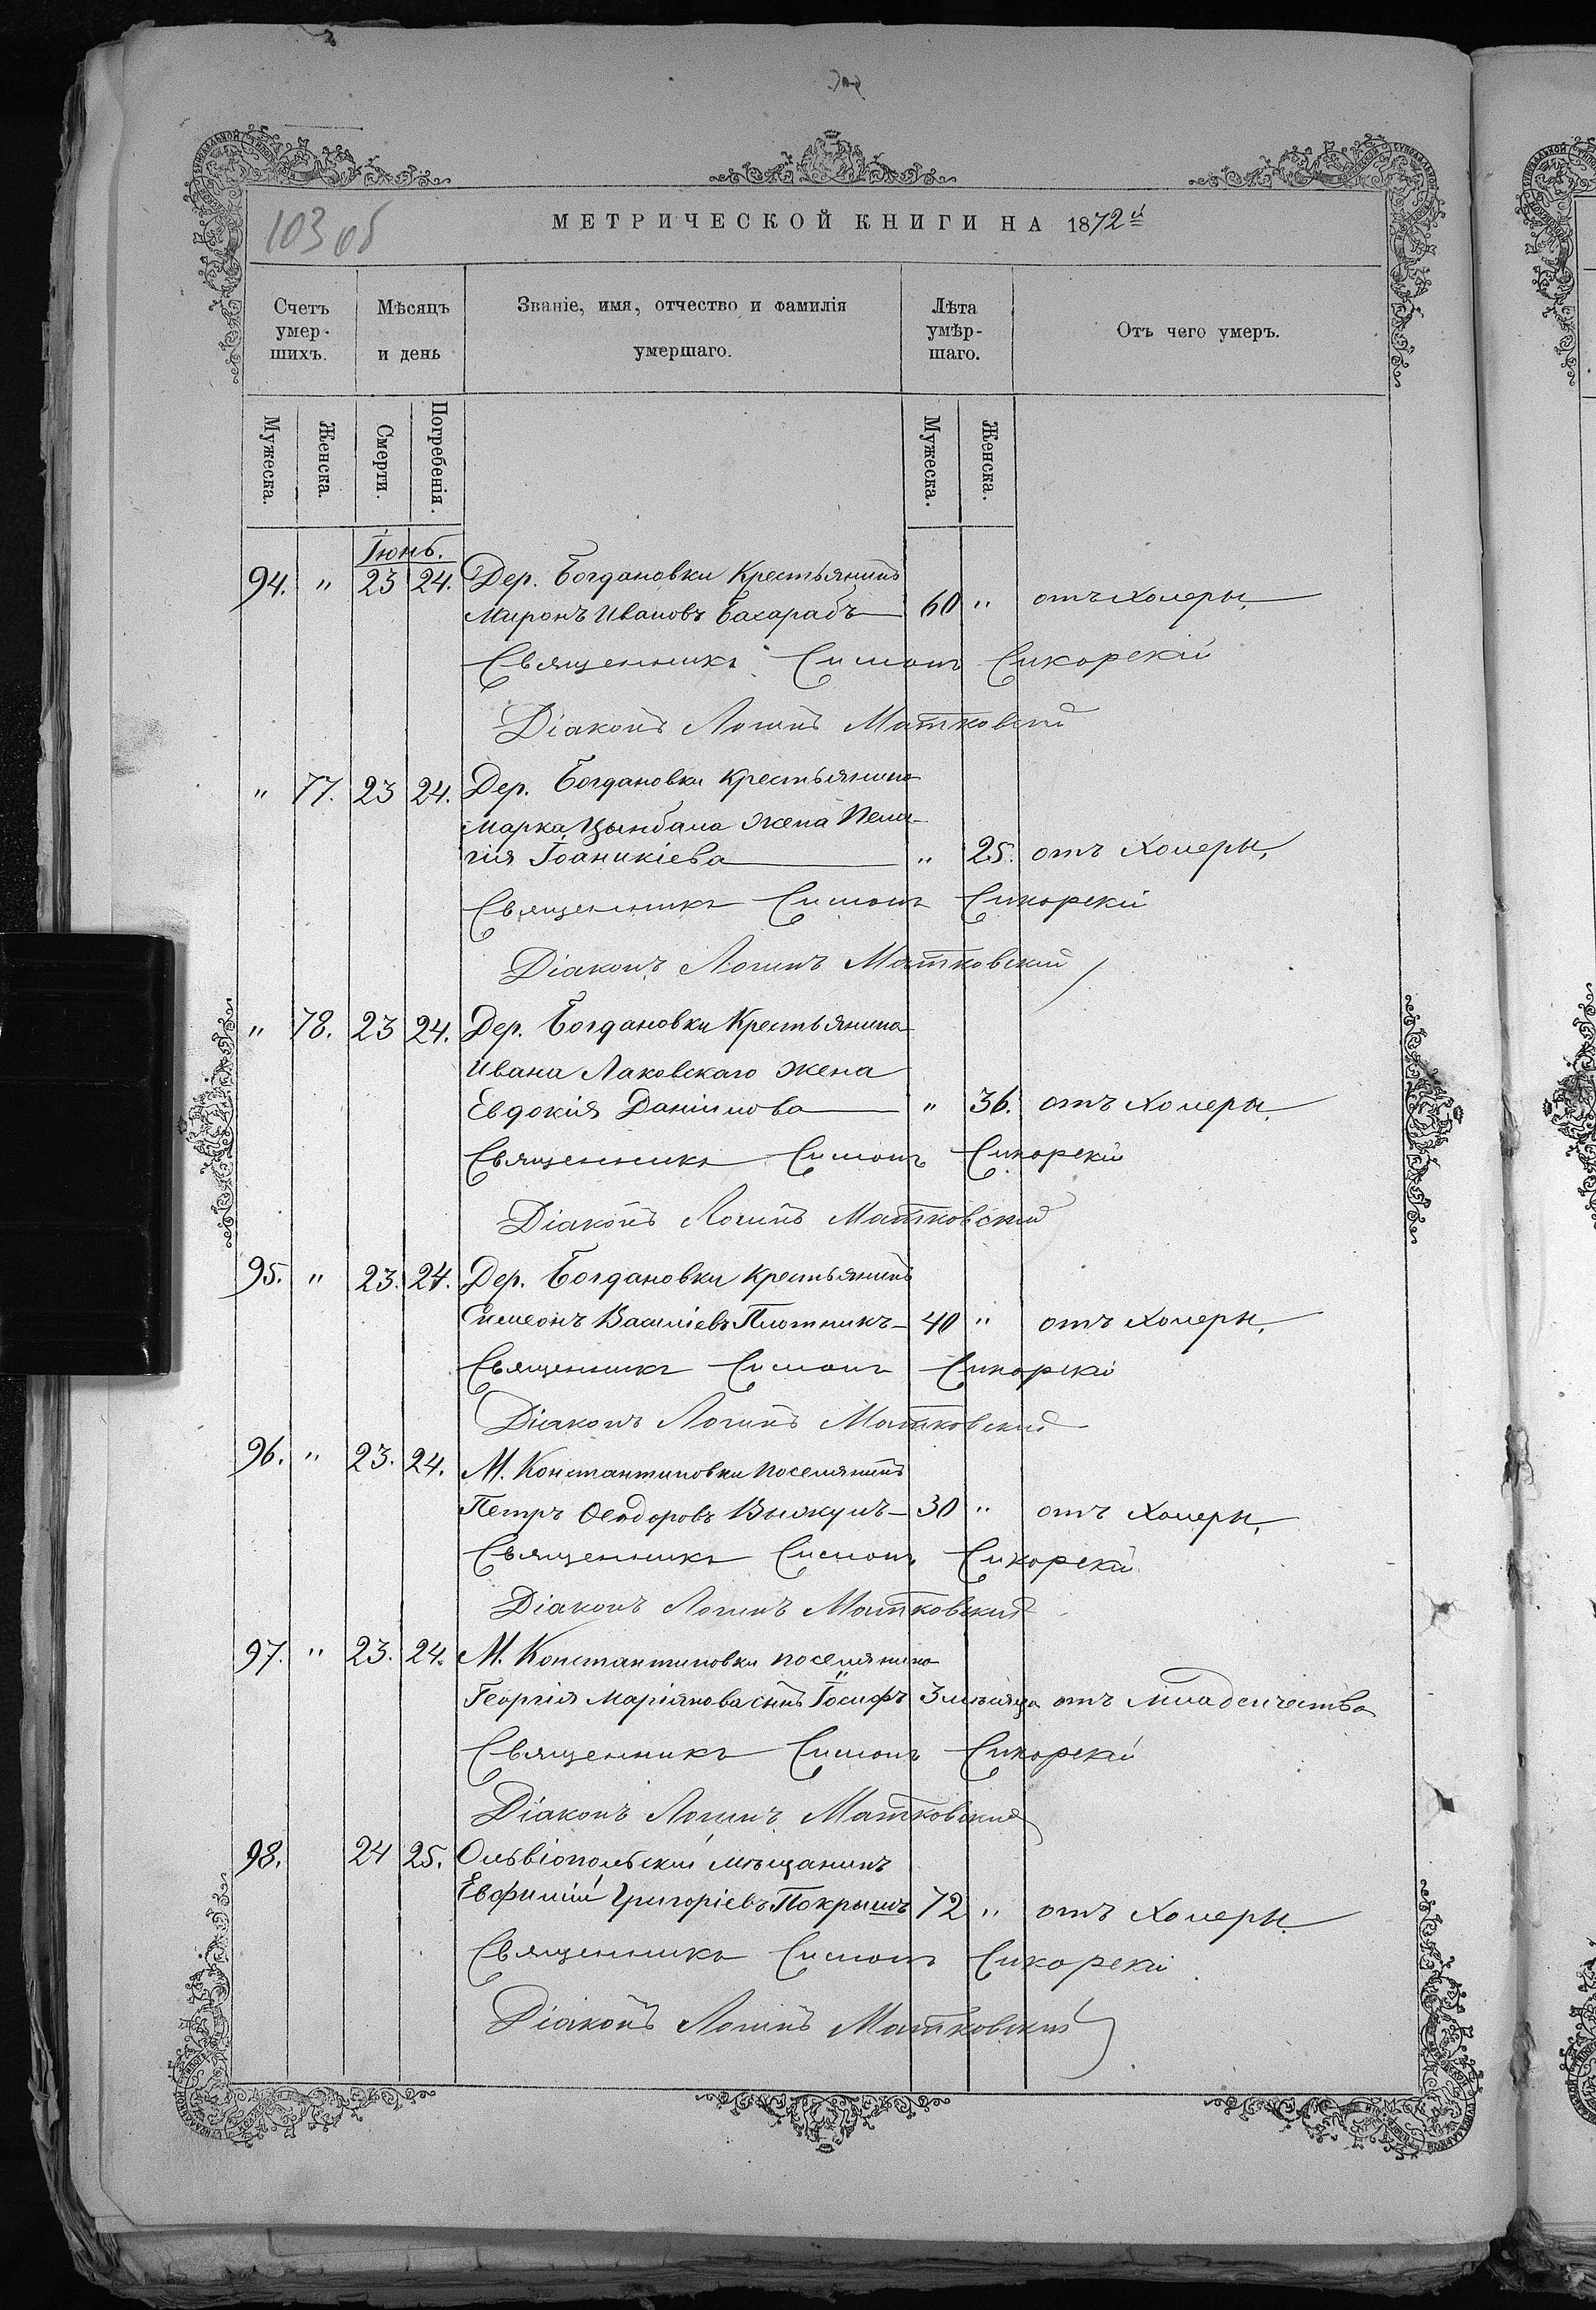 103 об
МЕТРИЧЕСКОЙ КНИГИ НА 1872й
Счетъ умер-шихъ. Мѣсяцъ и день Званіе, имя, отчество и фамилія умершаго. Лѣта умѣр-шаго. Отъ чего умеръ.
Мужеска. Женска. Смерти. Погребенія. Мужеска. Женска.
Іюнь.
94. " 23 24. Дер. Богдановки Крестьянинъ
Миронъ Ивановъ Басарабъ 60 " отъ холеры.
Священникъ Симонъ Сикорскій
Діаконъ Логинъ Матковскій
" 77. 23 24. Дер. Богдановки крестьянина
Марка Цымбала жена Пела-
гія Іоаникіева " 25. отъ холеры.
Священникъ Симонъ Сикорскій
Діаконъ Логинъ Матковскій
" 78. 23 24. Дер. Богдановки Крестьянина
Ивана Лаковскаго жена
Евдокія Даніилова " 36. отъ холеры.
Священникъ Симонъ Сикорскій
Діаконъ Логинъ Матковскій
95. " 23. 24. Дер. Богдановки крестьянинъ
Симеонъ Василіевъ Плотникъ 40 " отъ холеры.
Священникъ Симонъ Сикорскій
Діаконъ Логинъ Матковскій
96. " 23. 24. М. Константиновки поселянинъ
Петръ Ѳеодоровъ 30 " отъ холеры.
Священникъ Симонъ Сикорскій
Діаконъ Логинъ Матковскій
97. " 23. 24. М. Константиновки поселянина
Георгія Маріянова сынъ Іосифъ 3 мѣсяца отъ младенчества
Священникъ Симонъ Сикорскій
Діаконъ Логинъ Матковскій
98. 24 25. Ольвіопольскій мѣщанинъ
Евфимій Григоріевъ 72 " отъ холеры.
Священникъ Симонъ Сикорскій
Діаконъ Логинъ Матковскій